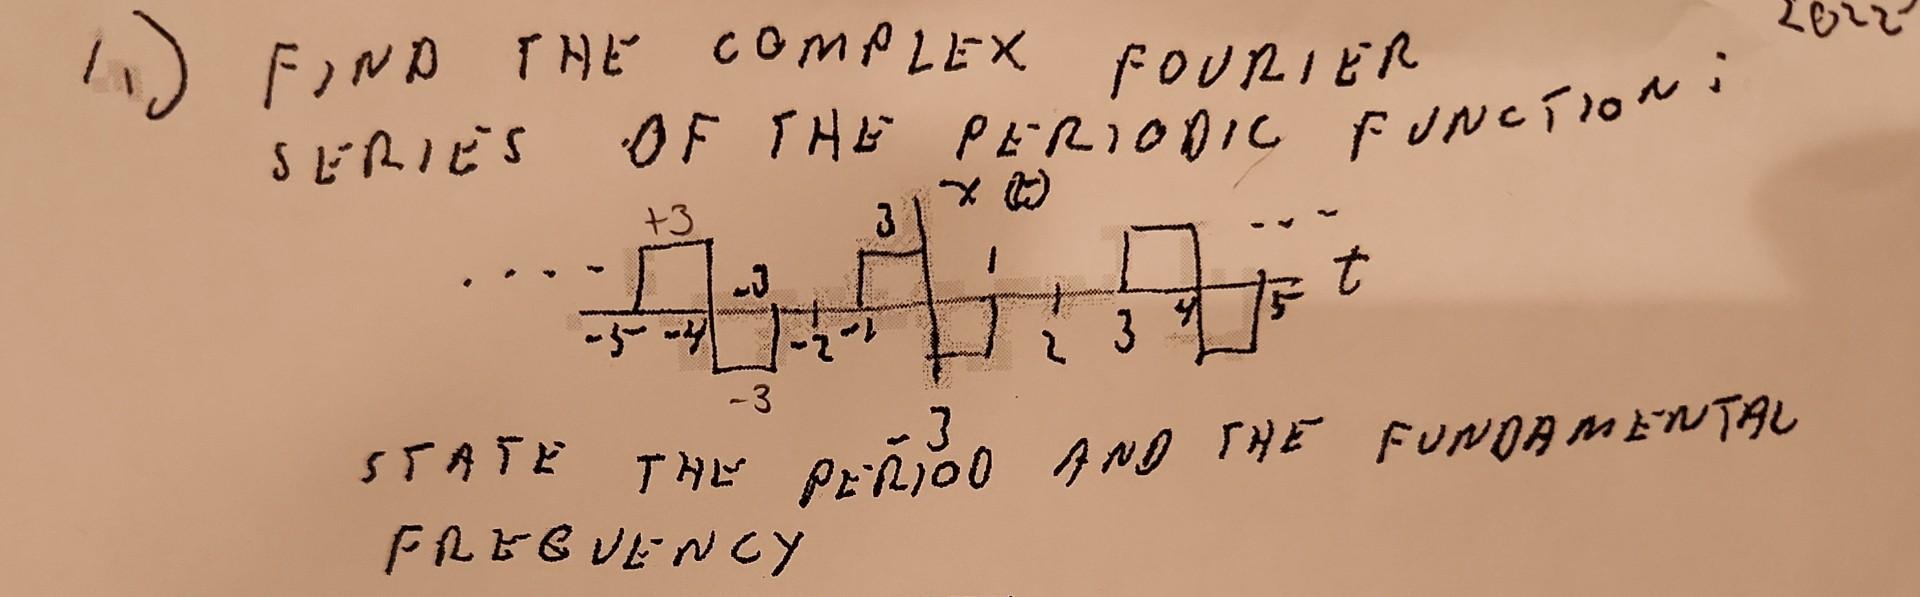 1,) FIND THE COMPLEX FOURIER 2022
SERIES OF THE PERIODIC FUNCTION:
x(t)
+3 3
.... -3 1 --- t
-5 -4 -2 -1 2 3 4 5
-3 -3
STATE THE PERIOD AND THE FUNDAMENTAL
FREQUENCY